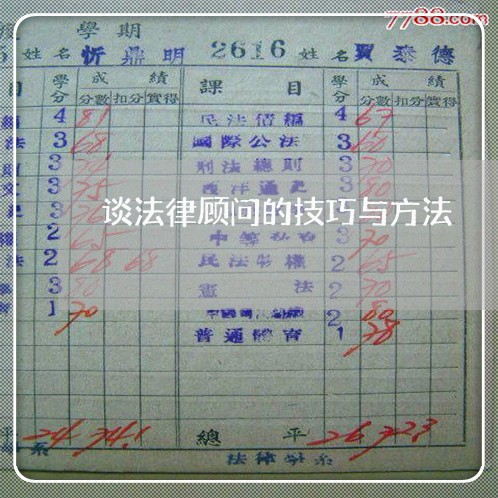 7788.com
學期
姓名 忻鼎明 2616 姓名 賈泰德
目 學分 成績 課目 學分 成績
分數 扣分 實得 分數 扣分 實得
4 81 民法債編 4 67
法 3 68 國際公法 3 60
3 刑法總則 3 70
3 75 西洋通史 3 80
谈法律顾问的技巧与方法
2 65 3 70
法 2 68 68 民法物權 2 65
3 80 憲法 2 70
1 70 2 80
普通體育 1 78
24 74.1 總平 26 72.3
系 法律學系